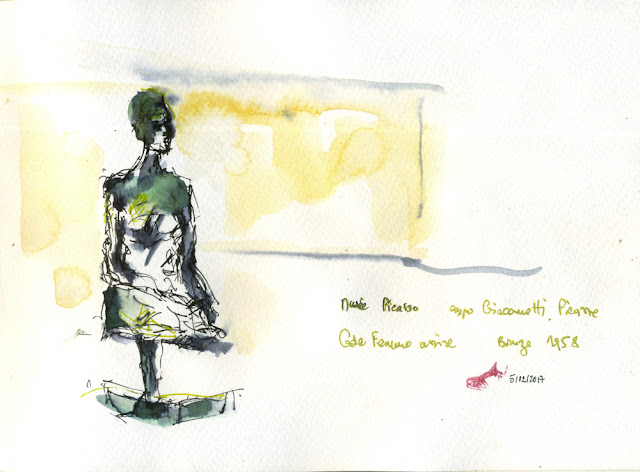 Musée Picasso expo Giacometti, Picasso
Gde Femme assise Bronze 1958
5/02/2017